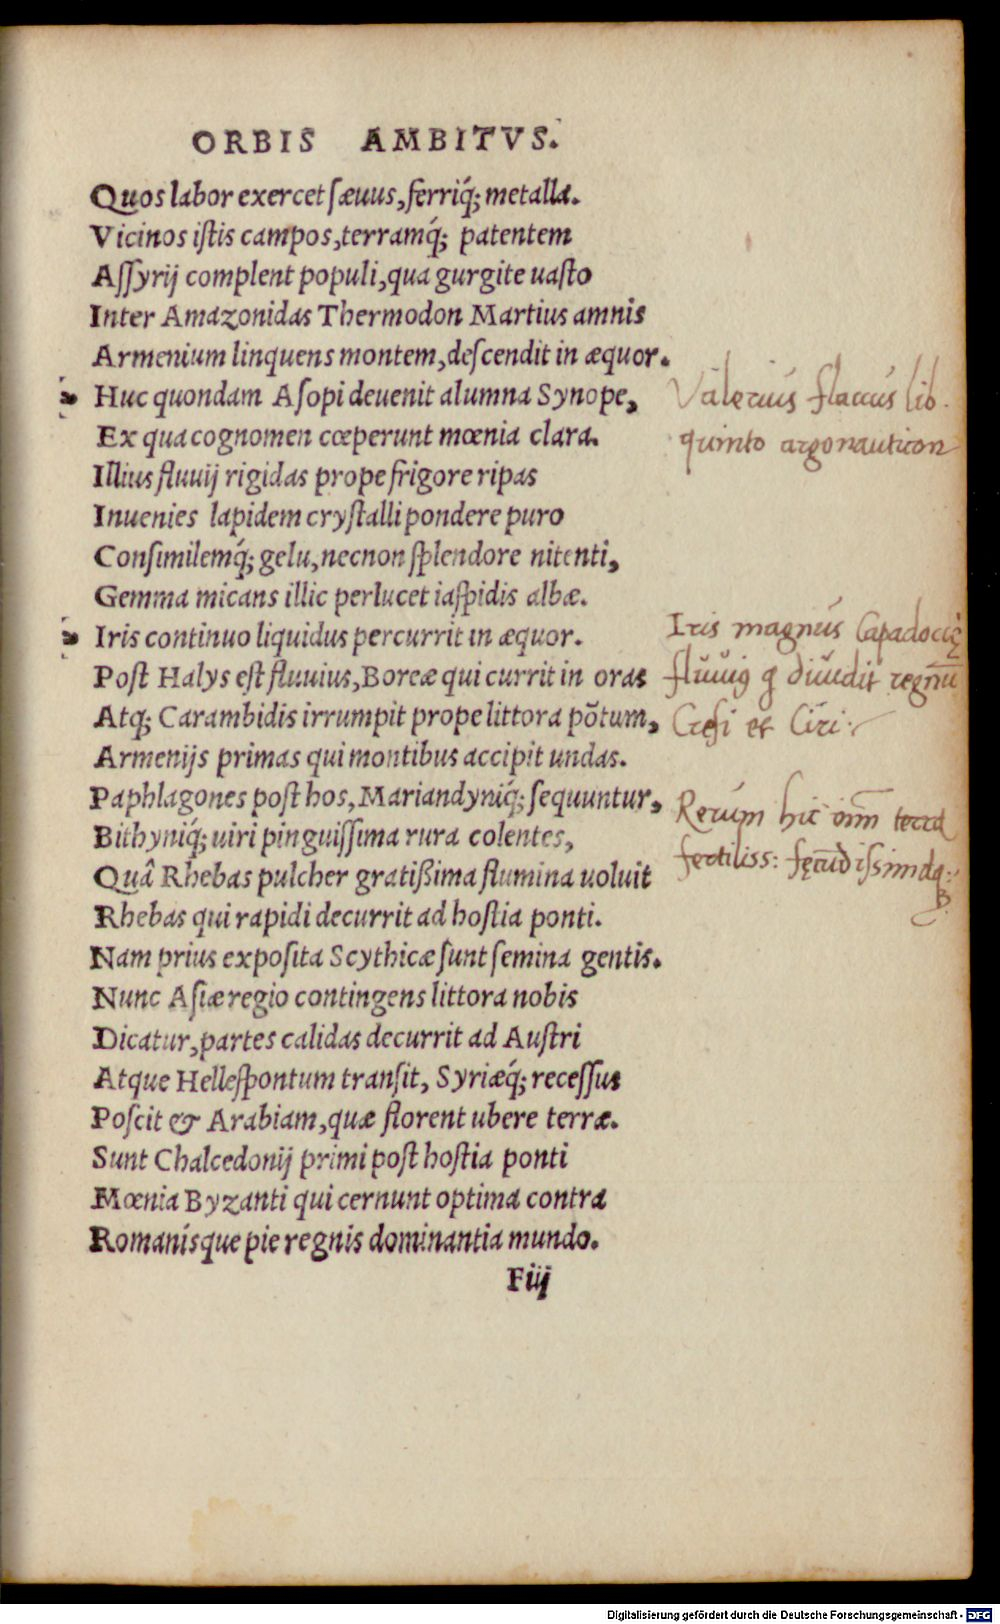 ORBIS AMBITVS.
Quos labor exercet sæuus, ferriq́; metalla.
Vicinos istis campos, terramq́; patentem
Assyrij complent populi, qua gurgite uasto
Inter Amazonidas Thermodon Martius amnis
Armenium linquens montem, descendit in æquor.
Huc quondam Asopi deuenit alumna Synope,
Ex qua cognomen cœperunt mœnia clara.
Valerius flaccus lib.
quinto argonauticon
Illius fluuij rigidas prope frigore ripas
Inuenies lapidem crystalli pondere puro
Consimilemq́; gelu, necnon splendore nitenti,
Gemma micans illic perlucet iaspidis albæ.
Iris continuo liquidus percurrit in æquor.
Post Halys est fluuius, Boreæ qui currit in oras
Atq; Carambidis irrumpit prope littora põtum,
Armenijs primas qui montibus accipit undas.
Iris magnus Capadocię
fluuiꝰ q diuidit regnū
Cresi et Ciri
Paphlagones post hos, Mariandyniq́; sequuntur,
Bithyniq́; uiri pinguissima rura colentes,
Quâ Rhebas pulcher gratißima flumina uoluit
Rhebas qui rapidi decurrit ad hostia ponti.
Rerum hic oīm terra
fertiliss:
Nam prius exposita Scythicæ sunt semina gentis.
Nunc Asiæ regio contingens littora nobis
Dicatur, partes calidas decurrit ad Austri
Atque Hellespontum transit, Syriæq́; recessus
Poscit & Arabiam, quæ florent ubere terræ.
Sunt Chalcedonij primi post hostia ponti
Mœnia Byzanti qui cernunt optima contra
Romanísque pie regnis dominantia mundo.
Fiij
Digitalisierung gefördert durch die Deutsche Forschungsgemeinschaft - DFG